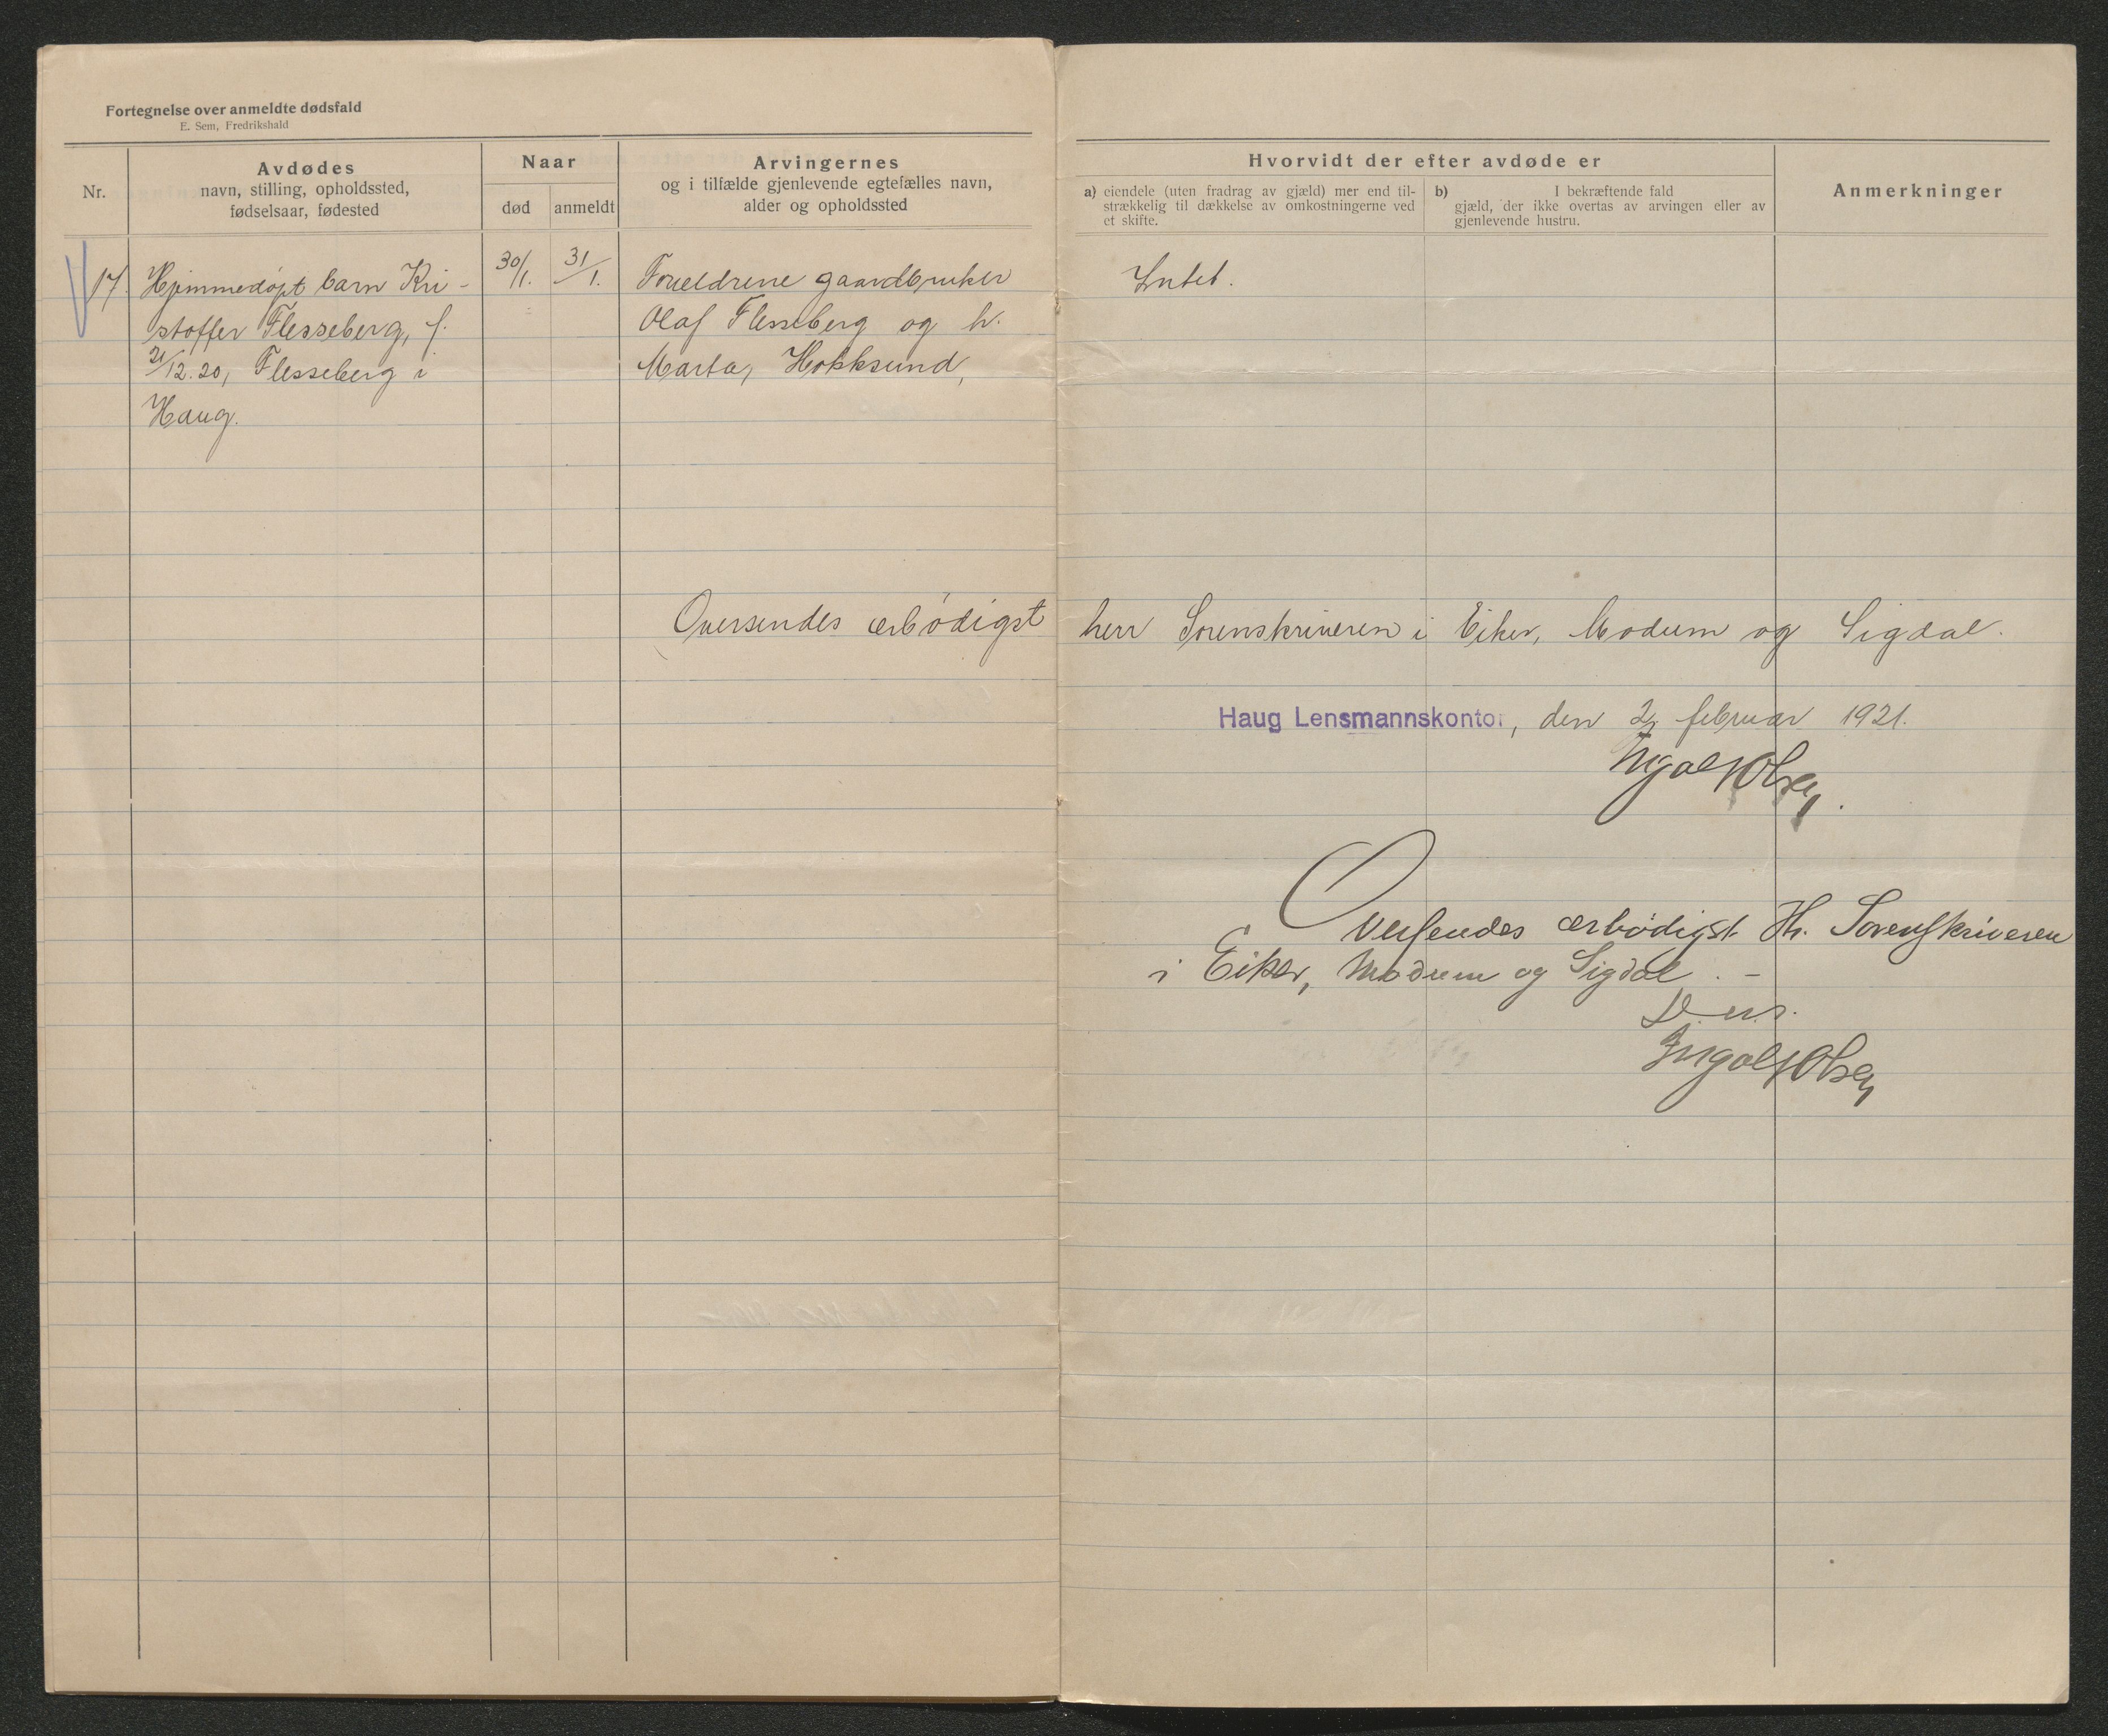 Fortegnelse over anmeldte dødsfald
E. Sem, Fredrikshald
Nr.
Avdødes
navn, stilling, opholdssted,
fødselsaar, fødested
Naar
død
anmeldt
Arvingernes
og i tilfælde gjenlevende egtefælles navn,
alder og opholdssted
Hvorvidt der efter avdøde er
a) eiendele (uten fradrag av gjæld) mer end til-
strækkelig til dækkelse av omkostningerne ved
et skifte.
b) I bekræftende fald
gjæld, der ikke overtas av arvingen eller av
gjenlevende hustru.
Anmerkninger
17.
Hjemmedøpt barn Kri-
stoffer Flesseberg, f.
21/12.20, Flesseberg i
Haug.
30/1.
31/1.
Forældrene gaardbruker
Olaf Flesseberg og h.
Marta, Hokksund,
Intet.
Oversendes ærbødigst herr Sorenskriveren i Eiker, Modum og Sigdal.
Haug Lensmannskontor, den 2/ februar 1921.
Ingolf Olsen.
Oversendes ærbødigst Hr. Sorenskriveren
i Eiker, Modum og Sigdal. -
D. u. s.
Ingolf Olsen